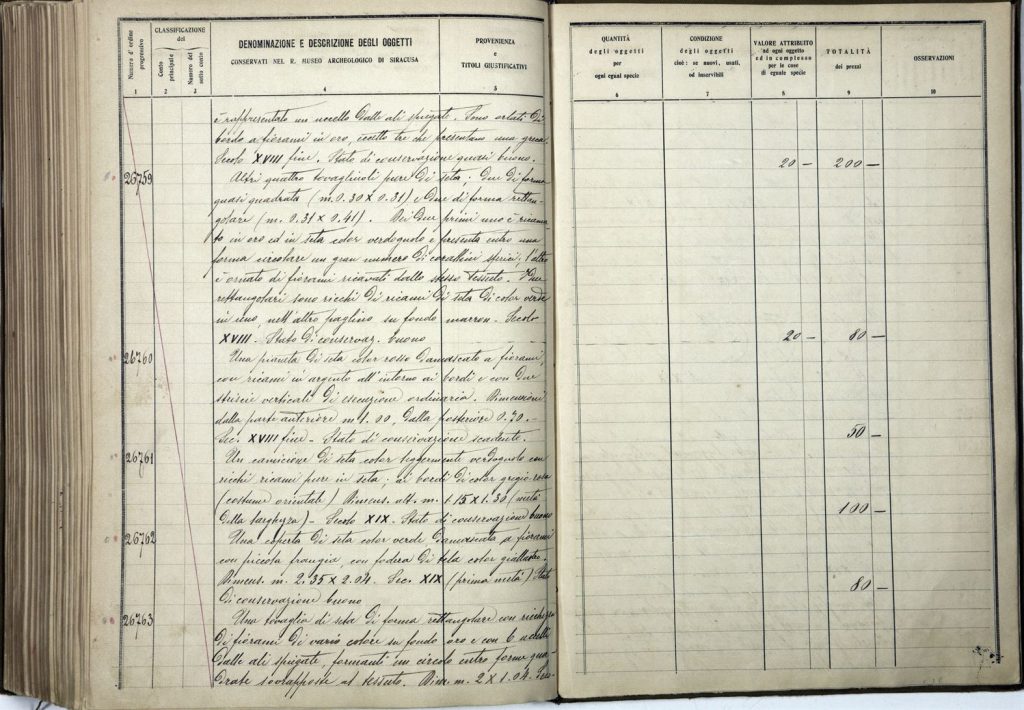 Numero d'ordine progressivo
CLASSIFICAZIONE del
Conto principale
Numero del sotto conto
DENOMINAZIONE E DESCRIZIONE DEGLI OGGETTI
CONSERVATI NEL R. MUSEO ARCHEOLOGICO DI SIRACUSA
PROVENIENZA
e
TITOLI GIUSTIFICATIVI
1 2 3 4 5
è rappresentato un uccello dalle ali spiegate. Sono orlati di
bordo a fiorami in oro, eccetto tre che presentano una greca.
Secolo XVIII fine. Stato di conservazione quasi buono.
26759 Altri quattro tovagliuoli pure di seta; due di forma
quasi quadrata (m. 0.30 x 0.31) e due di forma rettan-
golare (m. 0.31 x 0.41). Dei due primi uno è ricama-
to in oro ed in seta color verdognolo e presenta entro una
forma circolare un gran numero di corallini sferici; l'altro
è ornato di fiorami ricavati dallo stesso tessuto. I due
rettangolari sono ricchi di ricami di seta di color verde
in uno, nell'altro paglino su fondo marron. Secolo
XVIII. Stato di conservaz. buono
26760 Una pianeta di seta color rosso damascato a fiorami,
con ricami in argento all'intorno ai bordi e con due
striscie verticali di esecuzione ordinaria. Dimensioni
dalla parte anteriore m 1.00, dalla posteriore 0.70.-
Sec. XVIII fine - Stato di conservazione scadente.
26761 Un camicione di seta color leggermente verdognolo con
ricchi ricami pure in seta; ai bordi di color grigio-rosa
(costume orientale) Dimens. alt. m. 1.15 x 1.30 (metà
della larghezza) - Secolo XIX. Stato di conservazione buono
26762 Una coperta di seta color verde damascata a fiorami
con piccola frangia, con fodera di tela color giallastro.
Dimens. m. 2.35 x 2.04. Sec. XIX (prima metà) Stato
di conservazione buono
26763 Una tovaglia di seta di forma rettangolare con ricchezza
di fiorami di vario colore su fondo oro e con 6 uccelli
dalle ali spiegate, formanti un circolo entro forme qua-
drate sovrapposte al tessuto. Dim. m. 2 x 1.04. Seco-
QUANTITÀ
degli oggetti
per
ogni egual specie
CONDIZIONE
degli oggetti
cioè: se nuovi, usati,
od inservibili
VALORE ATTRIBUITO
ad ogni oggetto
ed in complesso
per le cose
di eguale specie
TOTALITÀ
dei prezzi
OSSERVAZIONI
6 7 8 9 10
20 - 200 -
20 - 80 -
50 -
100 -
80 -